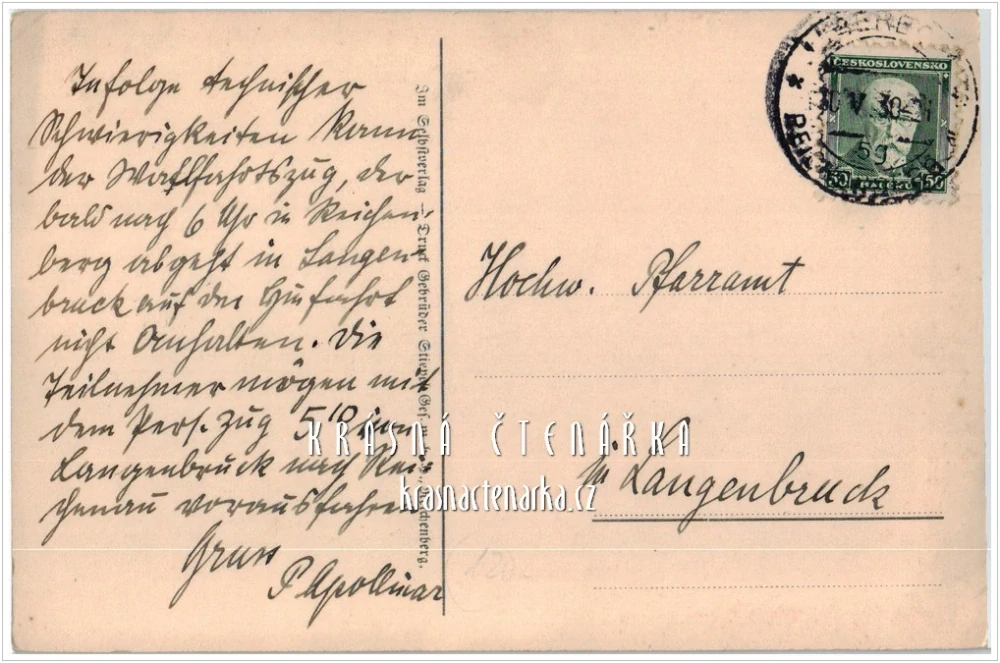 Infolge technischer
Schwierigkeiten kann
der Wallfahrtszug, der
bald nach 6 Uhr in Reichen-
berg abgeht in Langen-
bruck auf der Hinfahrt
nicht Anhalten. Die
Teilnehmer mögen mit
dem Pers. Zug 5 10 von
Langenbruck nach Rei-
chenau vorausfahren
Gruss
P Apollinar
Im Selbstverlag — Druck Gebrüder Stiepel Ges. m. Reichenberg.
ČESKOSLOVENSKO
50 50
30 V 30
5g
Hochw. Pfarramt
in Langenbruck
120-
KRÁSNÁ ČTENÁŘKA
krasnactenarka.cz